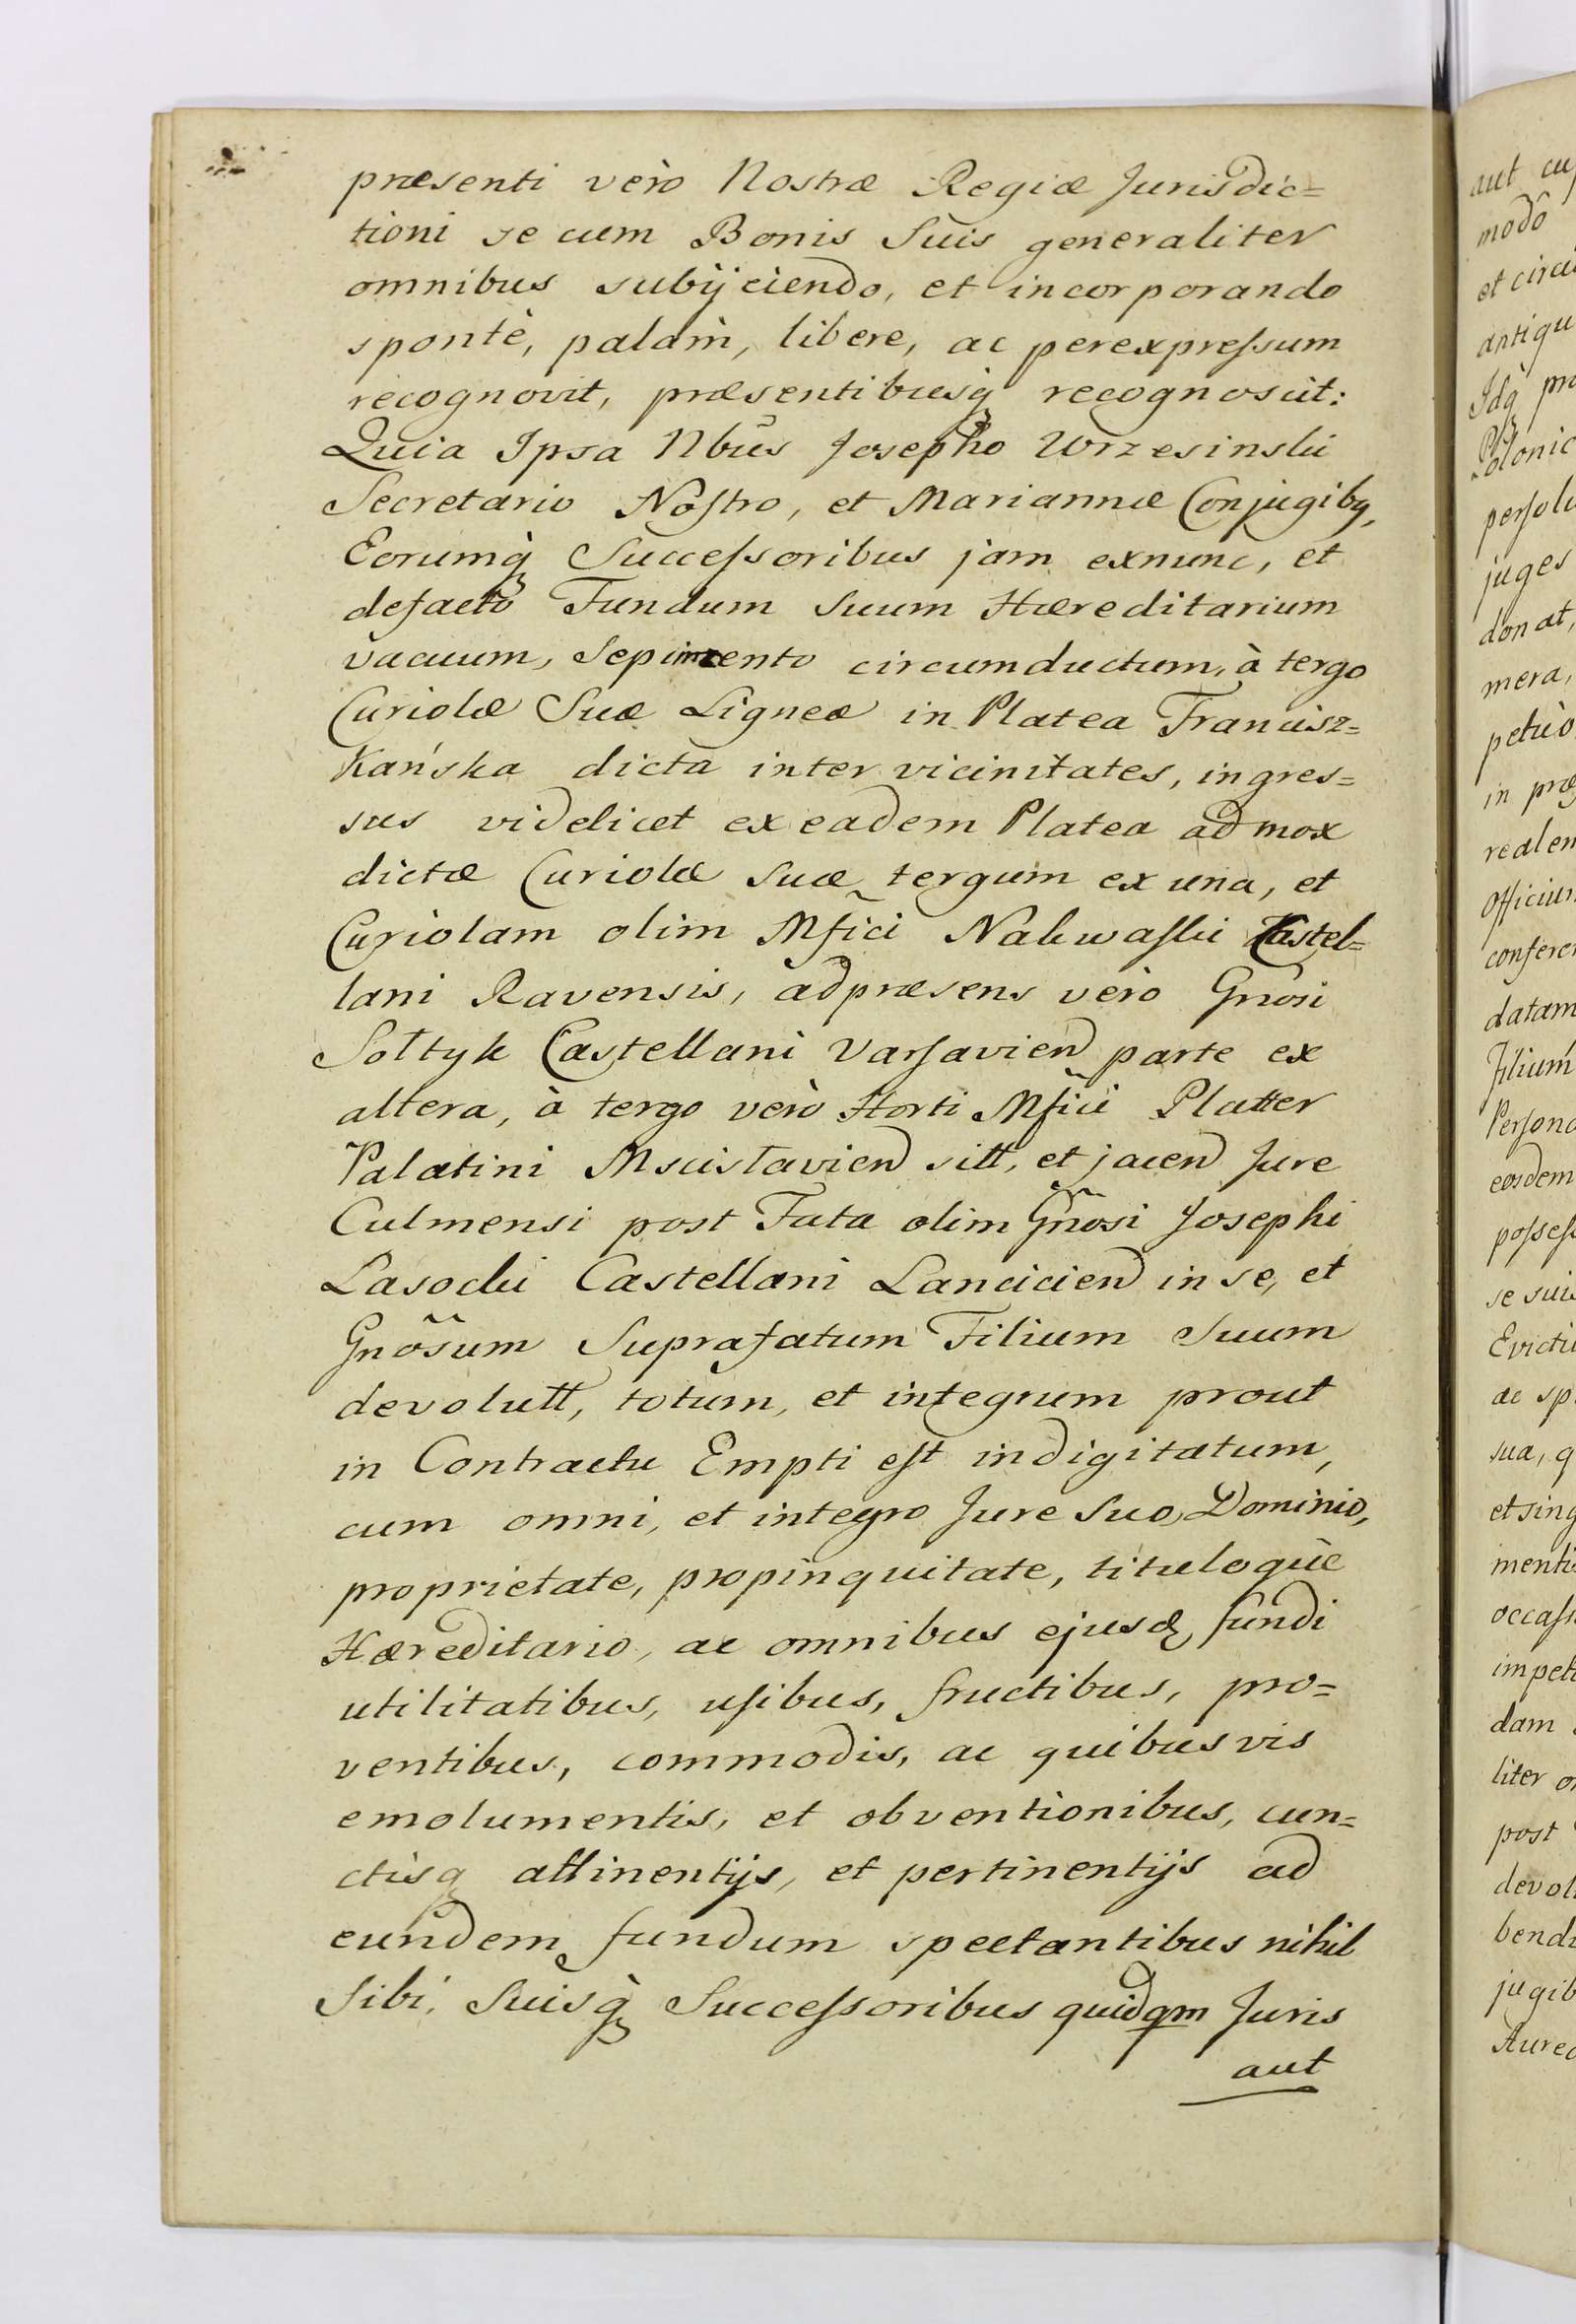 præsenti verò Nostræ Regiæ Jurisdic=
tioni se cum Bonis Suis generaliter
omnibus subijciendo, et incorporando
spontè, palàm, libere, ac perexpreſsum
recognovit, præsentibusq̀ recognoscit:
Quia Ipsa Nbũs Josepho Wrzesinski
Secretario Noſtro, et Mariannæ Conjugibq,
Eorumq̀ Succeſsoribus jam exnunc, et
defacto Fundum Suum Hæreditarium
vacuum, Sepimento circumductum, à tergo
Curiolæ Suæ Ligneæ in Platea Francisz=
Kańska dicta inter vicinitates, ingres=
sus videlicet ex eadem Platea ad mox
dictæ Curiolæ suæ tergum ex una, et
Curiolam olim Mfici Nakwaſki Castel=
lani Ravensis, adpræsens verò Gnõsi
Sołtyk Castellani Varſavien parte ex
altera, à tergo verò Horti Mfici Platter
Palatini Mscisłavien sitt, et jacen Jure
Culmensi post Fata olim Gnõsi Josephi
Lasocki Castellani Lancicien in se, et
Gnõsum Suprafatum Filium Suum
devolutt, totum, et integrum prout
in Contractu Empti eſt indigitatum,
cum omni, et integro Jure Suo, Dominio,
proprietate, propinquitate, tituloquè
Hæreditario, ac omnibus ejusd, fundi
utilitatibus, uſibus, fructibus, pro=
ventibus, commodis, ac quibusvis
emolumentis, et obventionibus, cun=
ctisq attinentijs, et pertinentijs ad
eundem fundum spectantibus nihil
Sibi, Suisq̀ Succeſsoribus quidqm Juris
aut
aut
modô
et
Idq̀
juges
donat,
mera,
petuò
in
datam
Filium
eosdem
se
ac
sua,
dam
liter
post